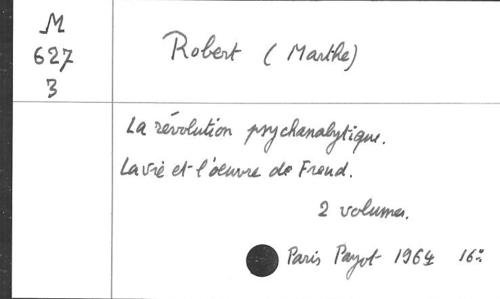 M
627
3
Robert (Marthe)
La révolution psychanalytique.
La vie et l'oeuvre de Freud.
2 volumes.
Paris Payot 1964 16°